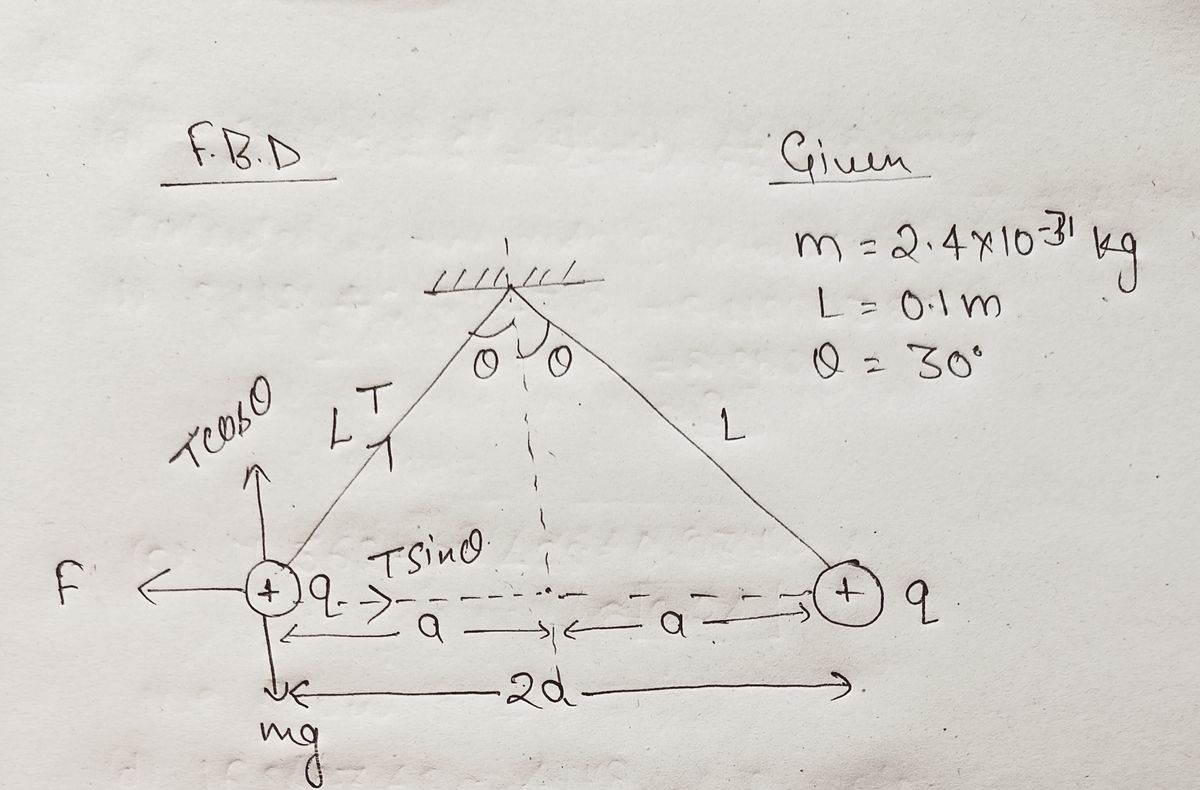 F.B.D
Given
m = 2.4×10⁻³¹ kg
L = 0.1m
θ = 30°
θ θ
T
L
L
Tcosθ
Tsinθ
F
+ q
+ q
a a
2d
mg